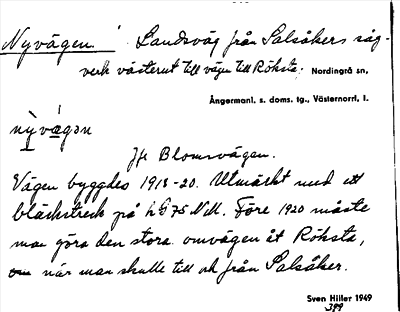 Nyvägen. Landsväg från Salsåkers såg-
verk västerut till vägen till Röksta. Nordingrå sn,
Ångermanl. s. doms. tg., Västernorrl. l.
nỳvä́gən
Jfr Blomsvägen.
Vägen byggdes 1918-20. Utmärkt med ett
bläckstreck på hG 75 NM. Före 1920 måste
man göra den stora omvägen åt Röksta,
om när man skulle till och från Salsåker.
Sven Hiller 1949
399